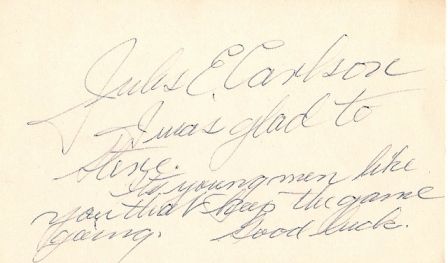 Jules E. Carlson
I was glad to
Steve.
Its young men like
you that keep the game
going. Good luck.